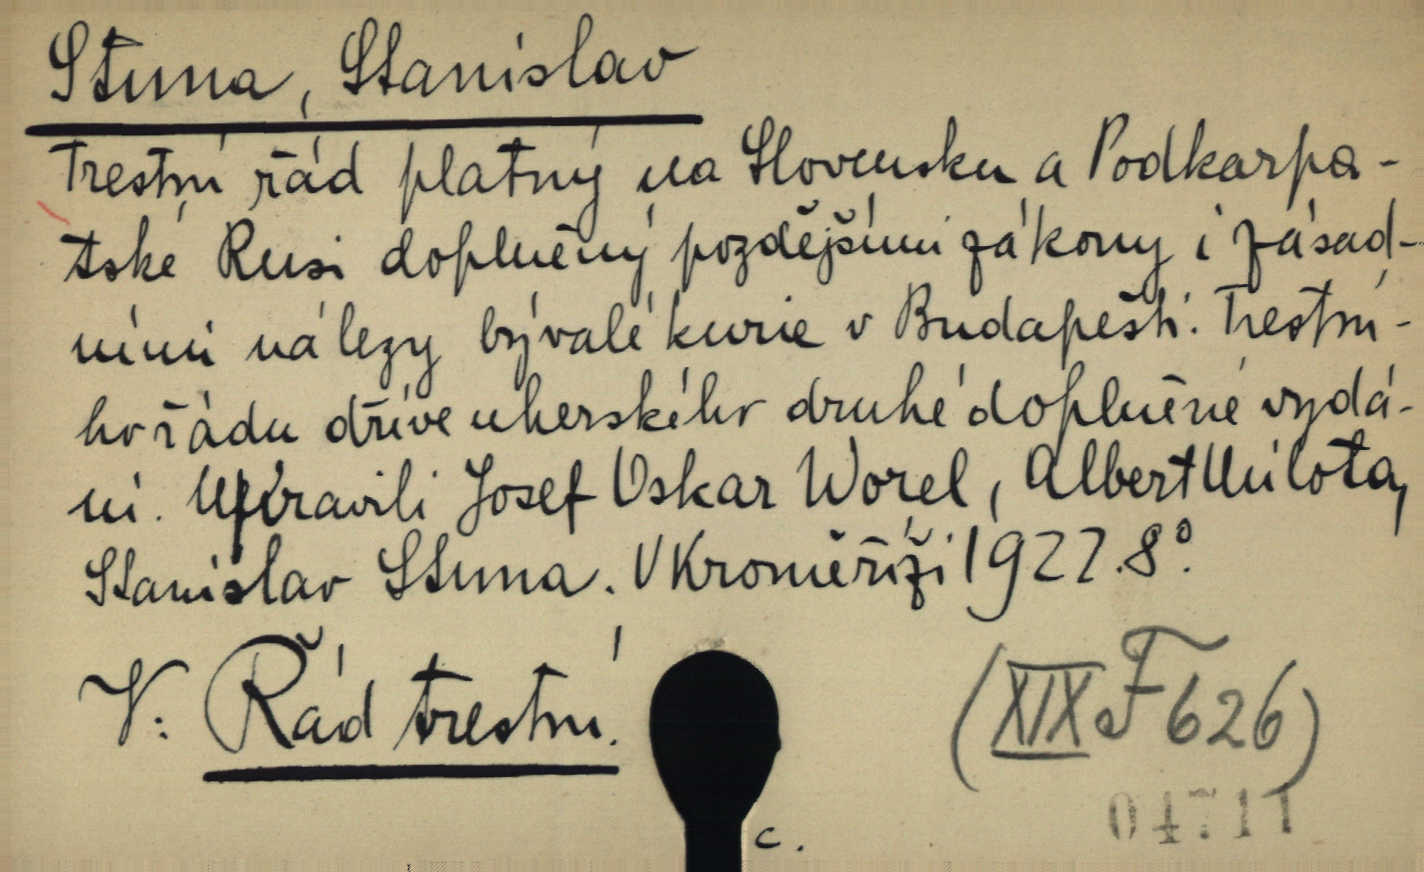 Stuna, Stanislav
Trestní řád platný na Slovensku a Podkarpa-
tské Rusi doplněný pozdějšími zákony i zásad-
ními nálezy bývalé kurie v Budapešti. Trestní-
ho řádu dříve uherského druhé doplněné vydá-
ní. Upravili Josef Oskar Worel, Albert Milota,
Stanislav Stuna. V Kroměříži 1922. 8°.
V: Řád trestní.
(XIX F 626)
04711
c.